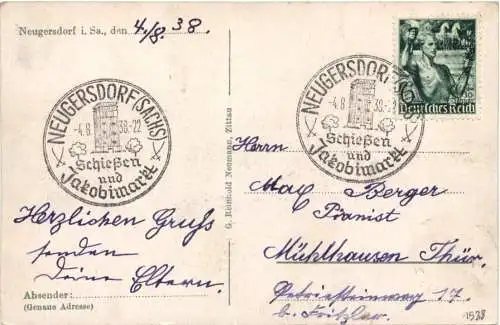 Neugersdorf i. Sa., den 4./8. 38.
NEUGERSDORF (SACHS)
-4.8 38-22
Schießen
und
Jakobimarkt
Herzlichen Gruss
senden
Deine Eltern.
Absender:
(Genaue Adresse)
G. Reinhold Neumann, Zittau
6
Deutsches Reich
NEUGERSDORF (SACHS)
-4.8 38-
Schießen
und
Jakobimarkt
Herrn
Max Berger
Pianist
Mühlhausen Thür.
17
b. Fritzlar.
1938